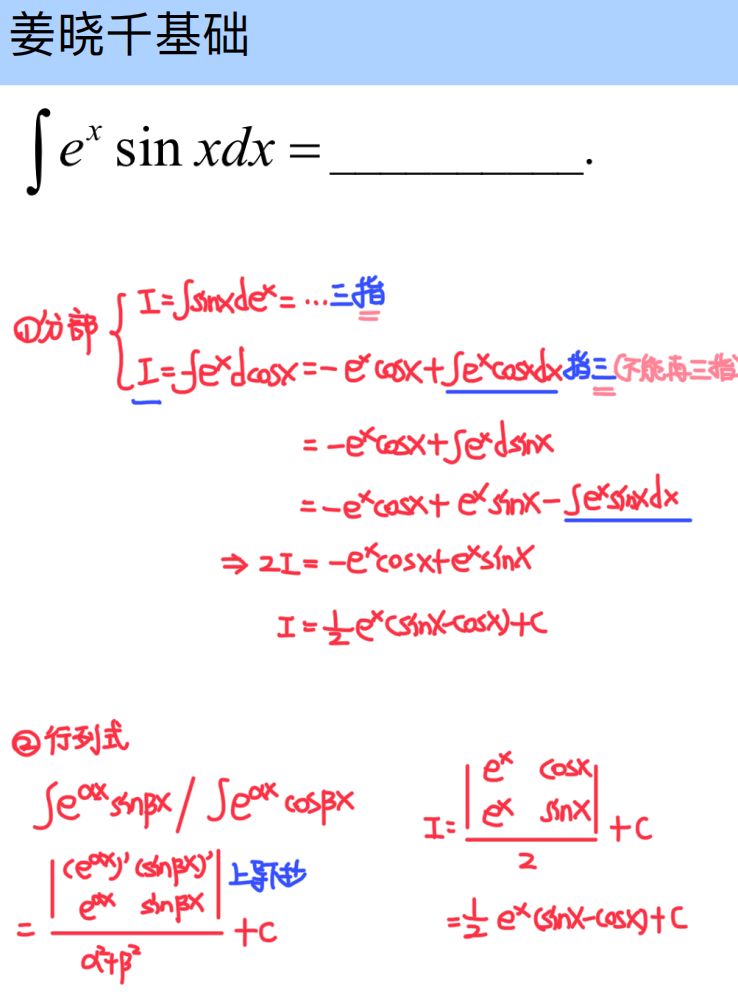 姜晓千基础
∫ e^x sin xdx = __________.
①分部 { I=∫sinxde^x= …三指
I=-∫e^x dcosx=-e^x cosx+∫e^x cosxdx 指三(不能再三指)
=-e^x cosx+∫e^x dsinx
=-e^x cosx+e^x sinx-∫e^x sinxdx
⇒ 2I=-e^x cosx+e^x sinx
I=1/2 e^x(sinx-cosx)+C
②行列式
∫e^αx sinβx / ∫e^αx cosβx
= |(e^αx)' (sinβx)'| 上导下抄
|e^αx sinβx|
α²+β² +C
I= |e^x cosx|
|e^x sinx|
2 +C
=1/2 e^x(sinx-cosx)+C